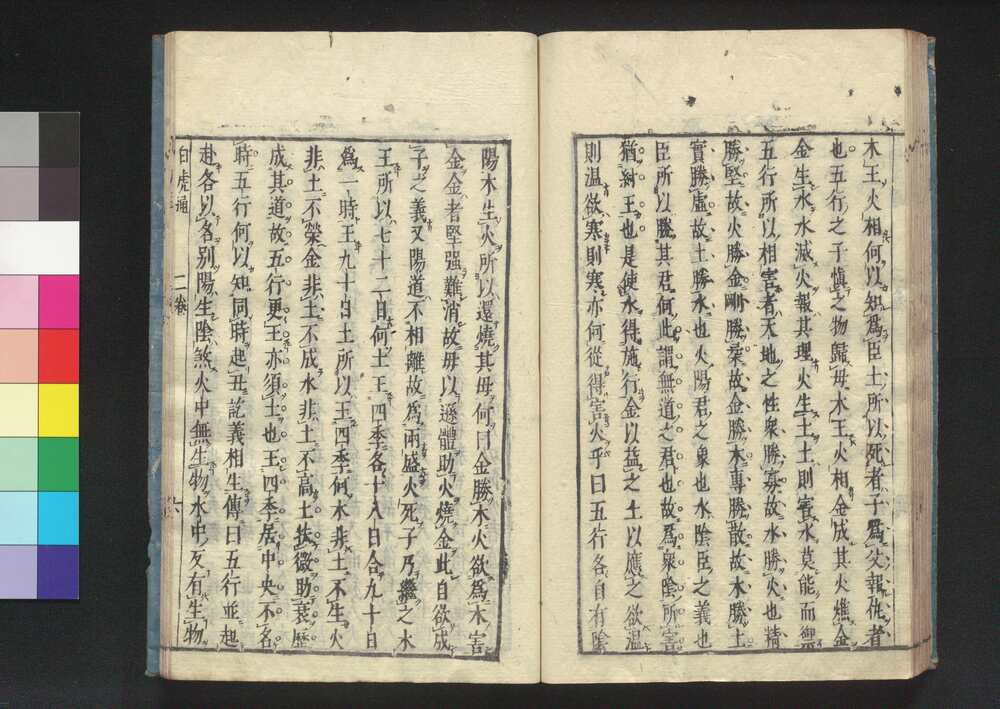 木王火相何以知爲臣土所以死者子爲父報仇者
也五行之子愼之物歸母木王火相金成其火燋金
金生水水滅火報其理火生土土則害水莫能而禦
五行所以相害者天地之性衆勝寡故水勝火也精
勝堅故火勝金剛勝柔故金勝木專勝散故木勝土
實勝虛故土勝水也火陽君之象也水陰臣之義也
臣所以勝其君何此謂無道之君也故爲衆陰所害
猶紂王也是使水得施行金以益之土以應之欲温
則温欲寒則寒亦何從得害火乎曰五行各自有陰
陽木生火所以還燒其母何曰金勝木火欲爲木害
金金者堅强難消故母以遜體助火燒金此自欲成
子之義又陽道不相離故爲兩盛火死子乃繼之木
王所以七十二日何土王四季各十八日合九十日
爲一時王九十日土所以王四季何木非土不生火
非土不榮金非土不成水非土不高土扶微助衰歷
成其道故五行更王亦須土也王四季居中央不名
時五行何以知同時起丑訖義相生傳曰五行並起
赴各以名别陽生陰煞火中無生物水中反有生物
白虎通 二卷 六